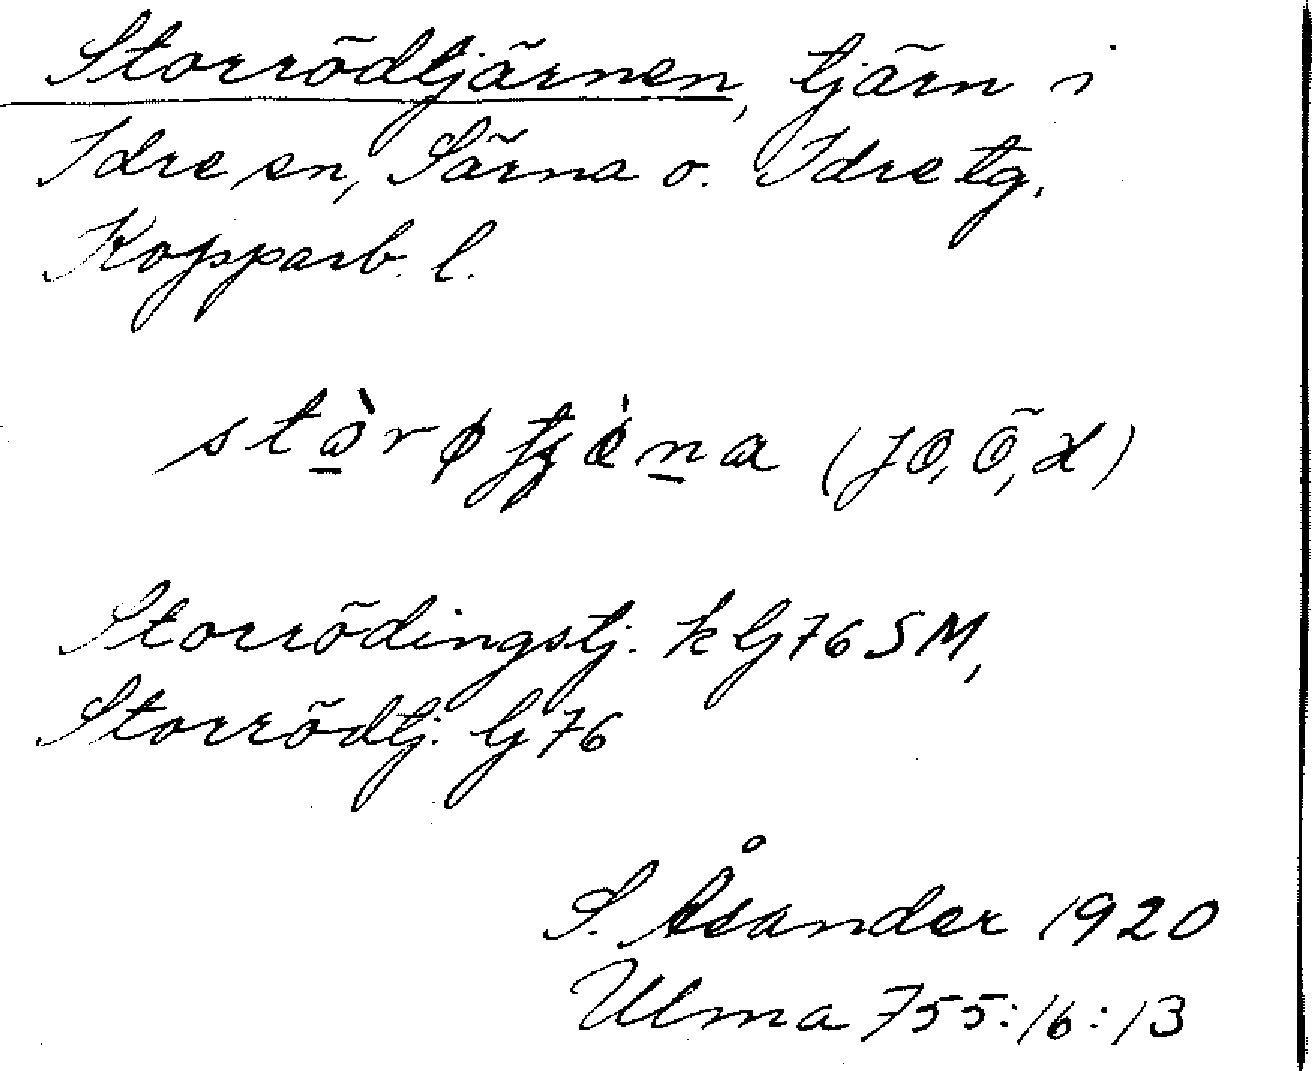 Storrödtjärnen, tjärn i
Idre sn, Särna o. Idre tg.
Kopparb. l.
(JO, Ö, X)
Storrödingstj. k Gj 76 SM,
Storrödtj. Gj 76
S. Åsander 1920
Ulma 755:16:13